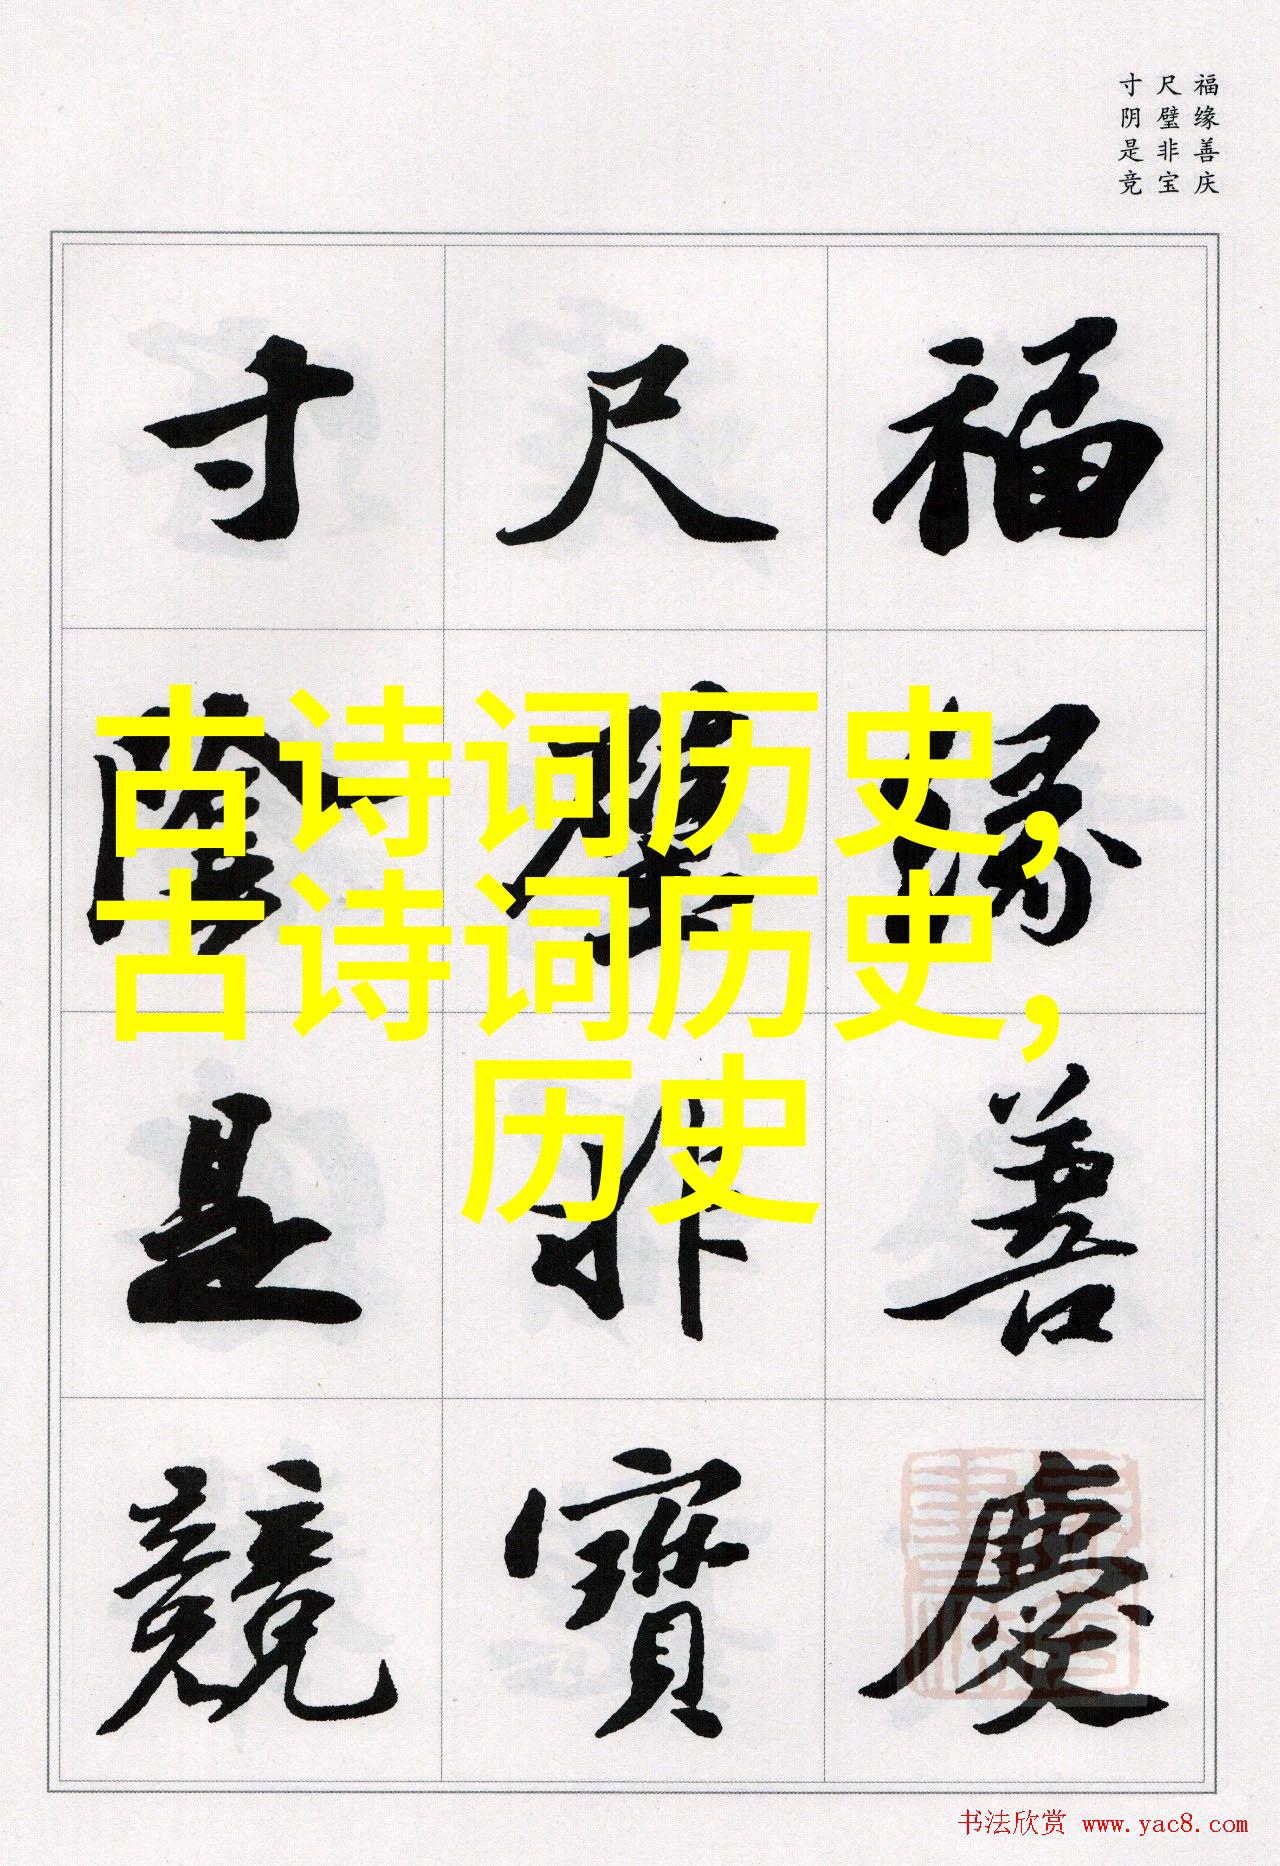 福缘善庆
尺璧非宝
寸阴是竞
福緣善慶
尺璧非寶
寸陰是競
古诗词历史,
古诗词历史,
历史
书法欣赏 www.yac8.com